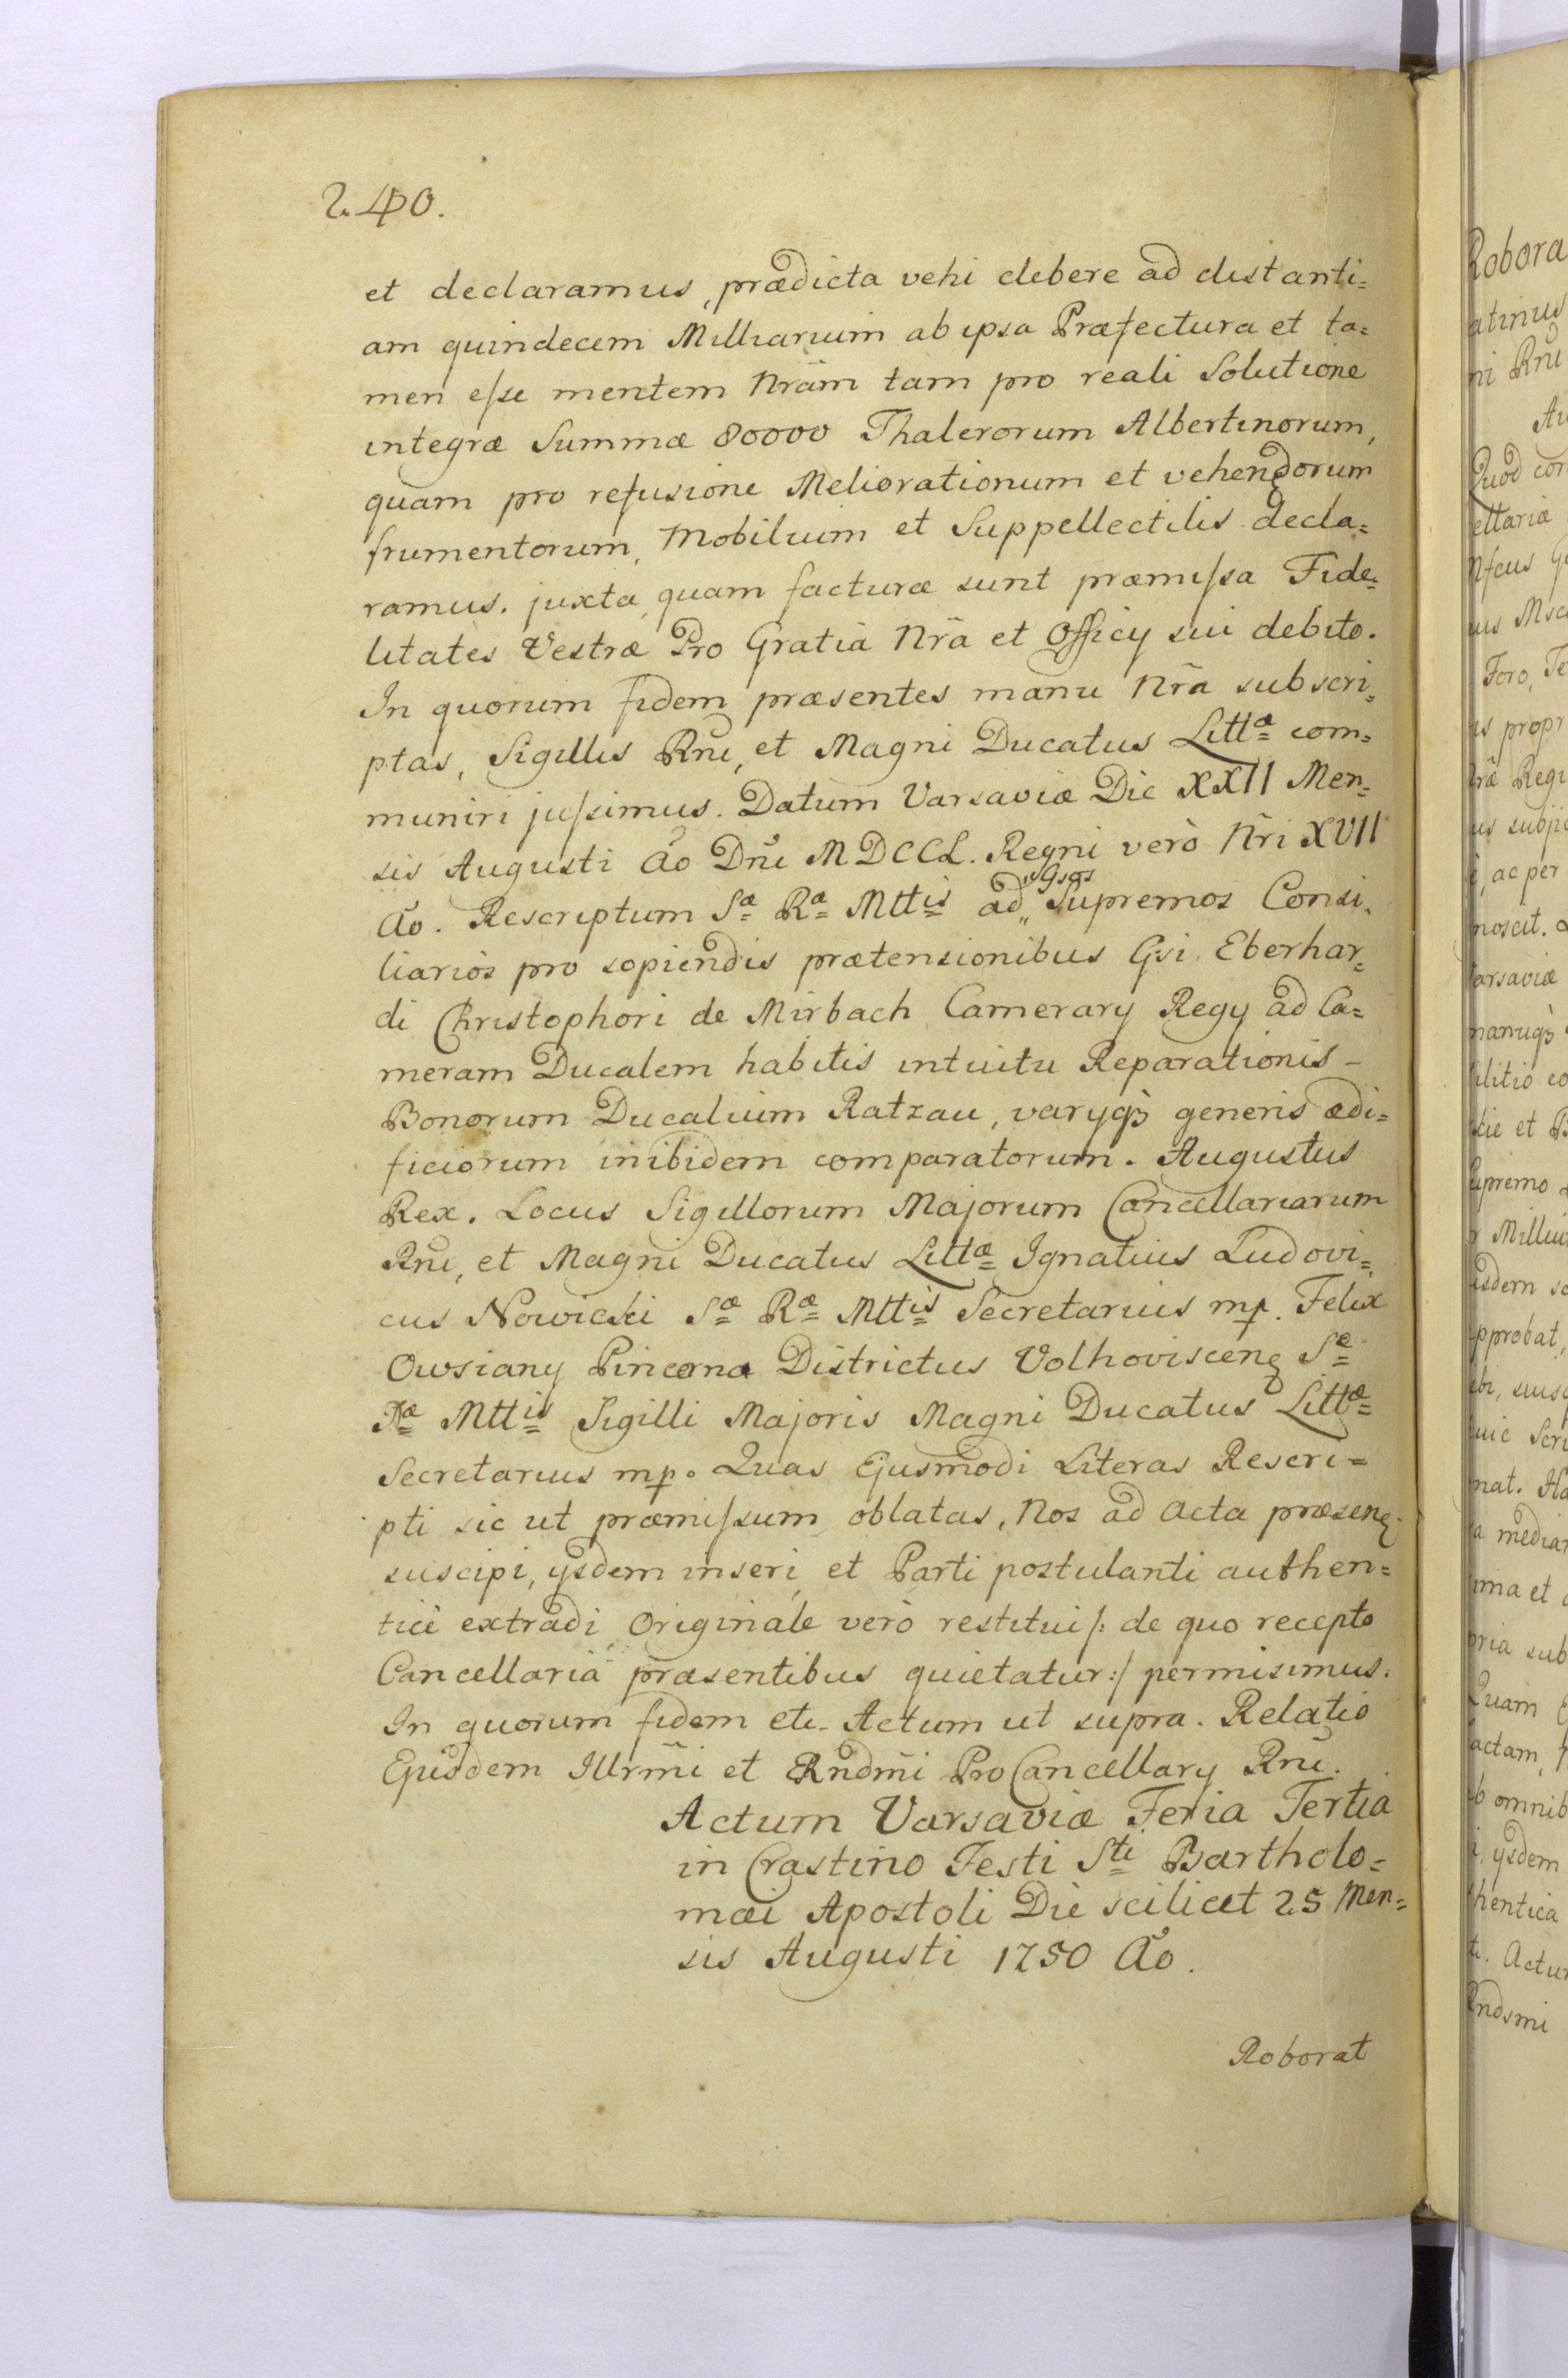 240.
et declaramus, prædicta vehi debere ad distanti=
am quindecem Milliarium ab ipsa Præfectura et ta=
men esse mentem Nrãm tam pro reali Solutione
integræ Summæ 80000 Thalerorum Albertinorum,
quam pro refusione Meliorationum et vehendorum
frumentorum, Mobilium et Suppellectilis decla=
ramus. juxta quam facturæ sunt præmissa Fide=
litates Vestræ Pro Gratia Nrã et Officij sui debito.
In quorum fidem præsentes manu Nrã subscri=
ptas, Sigillis Rni, et Magni Ducatus Littæ com=
muniri jussimus. Datum Varsaviæ Die XXII Men=
sis Augusti Ão Dni MDCCL. Regni verò Nri XVII
Ão. Rescriptum Sæ Ræ Mttis ad Gsos Supremos Consi=
liarios pro sopiendis prætensionibus Gsi Eberhar=
di Christophori de Mirbach Camerarij Regij ad Ca=
meram Ducalem habitis intuitu Reparationis –
Bonorum Ducalium Ratzau, varijqꝫ generis ædi=
ficiorum inibidem comparatorum. Augustus
Rex. Locus Sigillorum Majorum Cancellariarum
Rni, et Magni Ducatus Littæ Ignatius Ludovi=
cus Nowicki Sæ Ræ Mttis Secretarius mp. Felix
Owsiany Pincerna Districtus Volhoviscenꝫ Sæ
Ræ Mttis Sigilli Majoris Magni Ducatus Littæ
Secretarius mp. Quas Ejusmodi Literas Rescri=
pti sic ut præmissum oblatas, Nos ad Acta præsenꝫ
suscipi, ijsdem inseri et Parti postulanti authen=
ticè extradi Originale verò restitui /: de quo recepto
Cancellaria præsentibus quietatur :/ permisimus.
In quorum fidem etc. Actum ut supra. Relatio
Ejusdem Illrmi et Rndmi ProCancellarij Rni.
Actum Varsaviæ Feria Tertia
in Crastino Festi Sti Bartholo=
mæi Apostoli Die scilicet 25 Men=
sis Augusti 1750 Ão.
Roborat